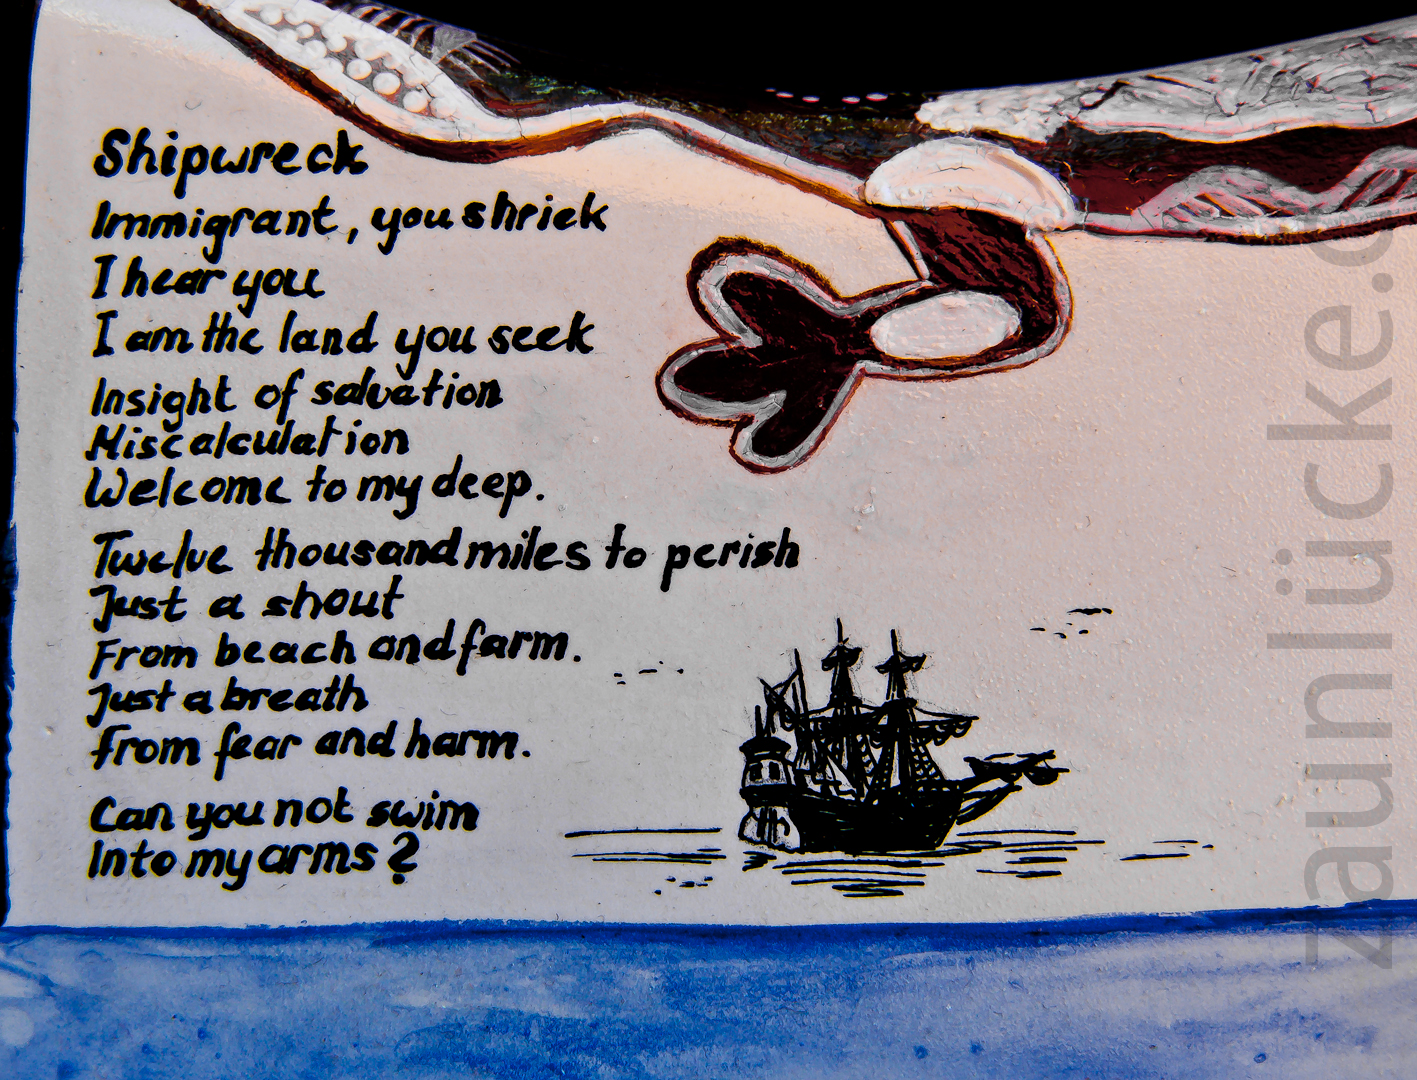 Shipwreck
Immigrant, you shriek
I hear you
I am the land you seek
Insight of salvation
Miscalculation
Welcome to my deep.
Twelve thousand miles to perish
Just a shout
From beach and farm.
Just a breath
From fear and harm.
Can you not swim
Into my arms?
zaunlücke.